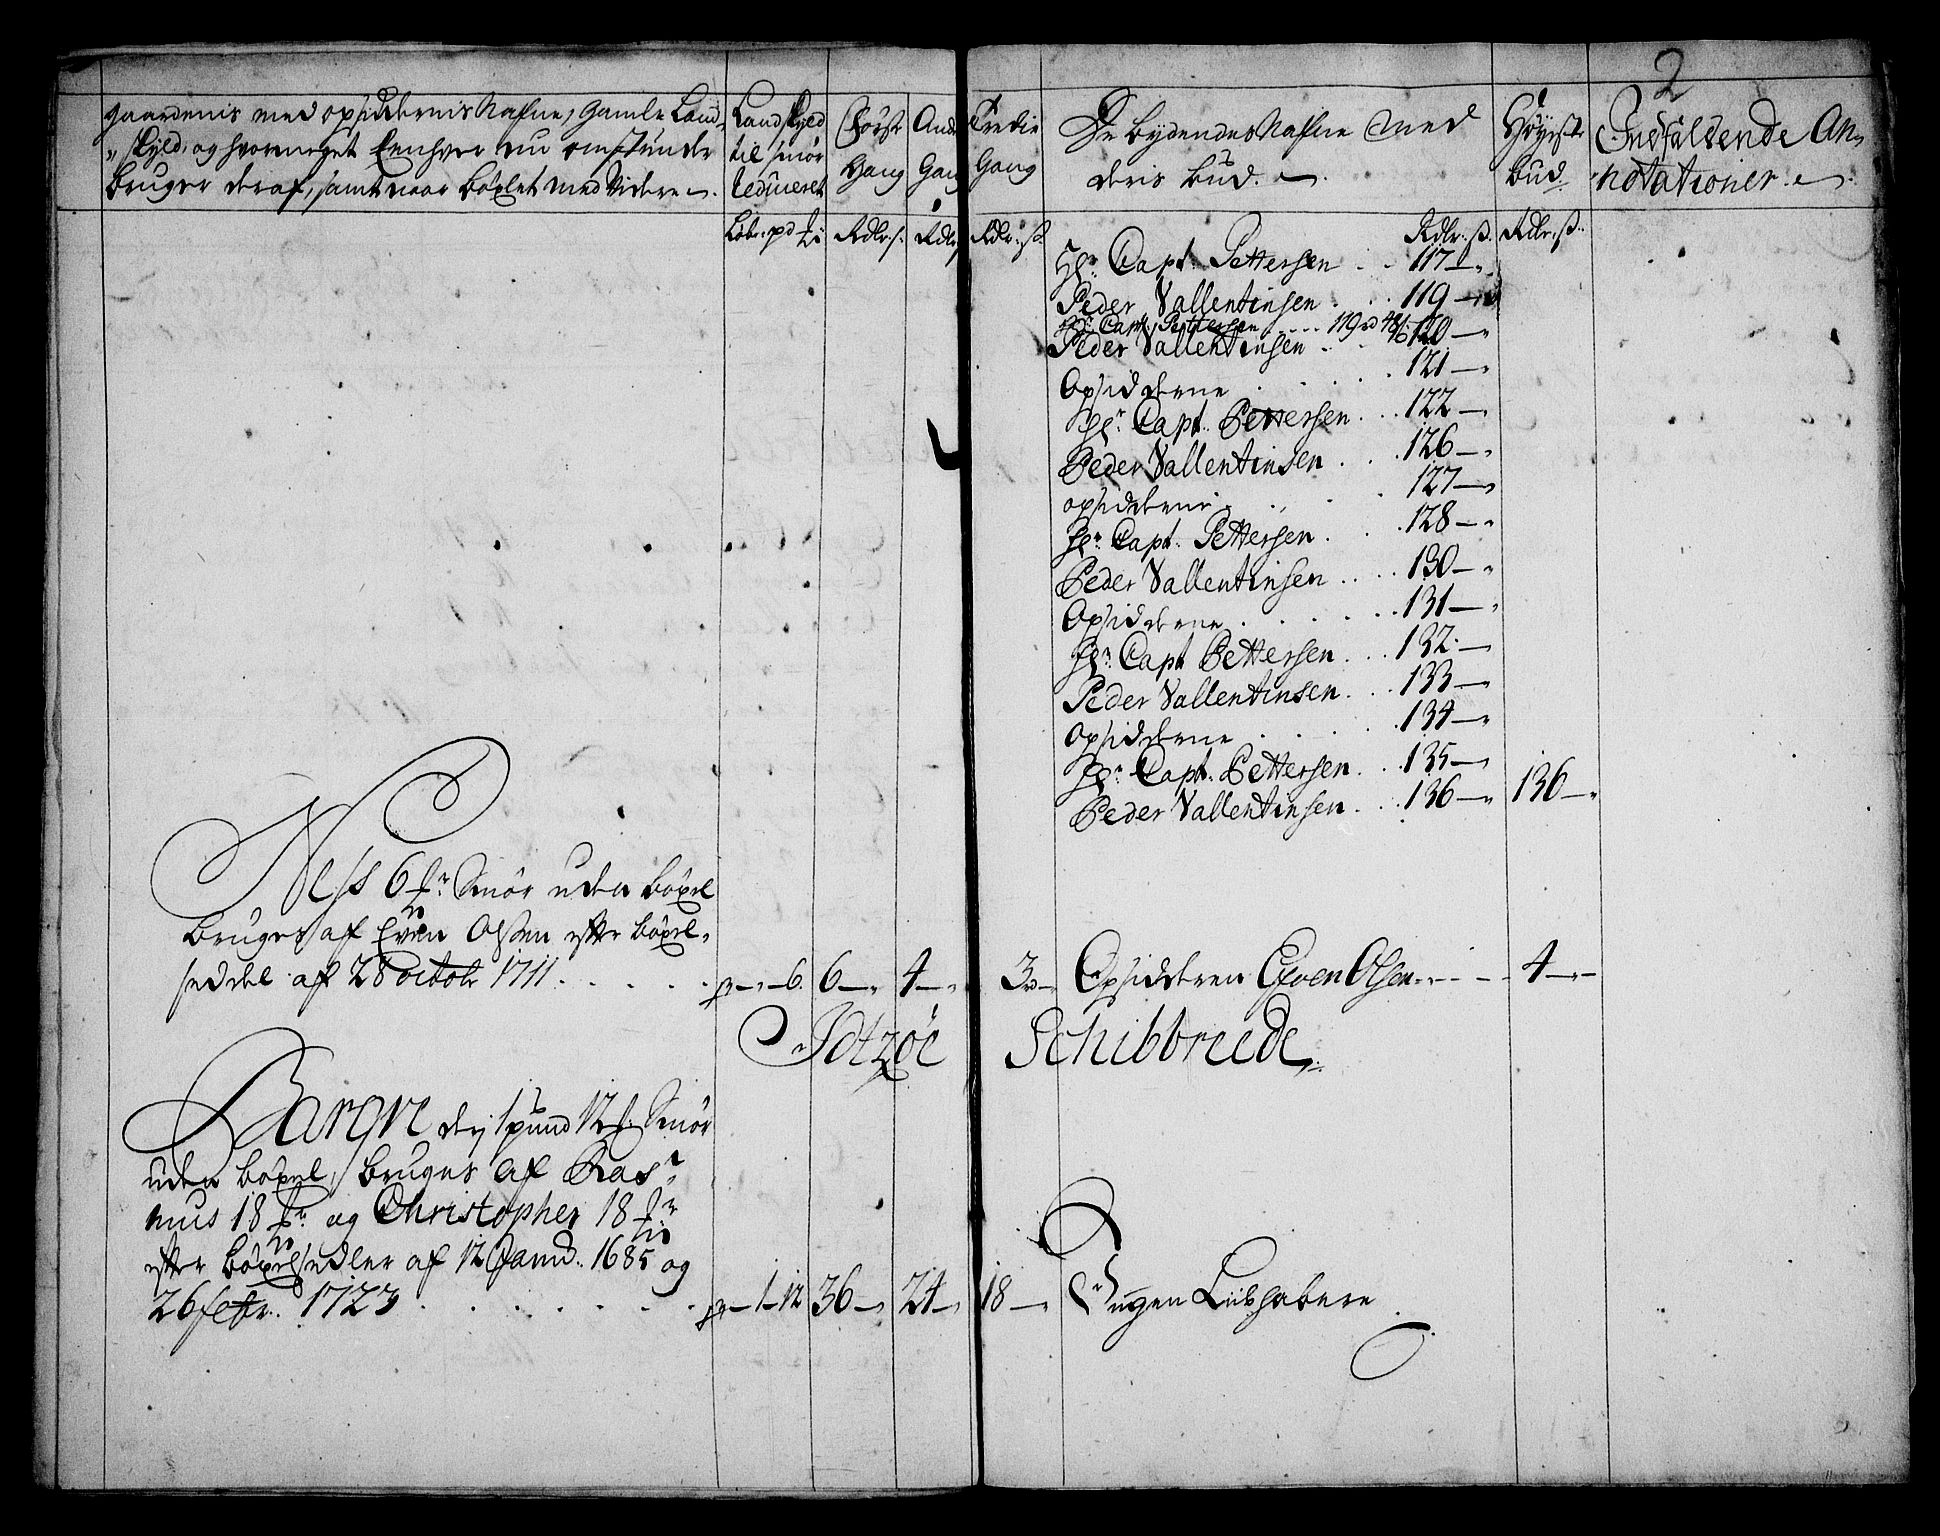 2
gaardenis med opsiddernis Nafne, Gamle Land-
skyld, og hvormeget Eenhver nu omstunder
bruger deraf, samt naar böxlet med Videre.
Landskyld
til smör
reduceret
Første
Gang
Anden
Gang
Tredie
Gang
De bydendes Nafne med
deris bud.
Höyeste
bud
Indfaldende An-
notationer.
Rdlr. s.
Hr. Capt. Pettersen . . 117
Peder Vallentinsen . . 119
Hr. Capt. Pettersen . . . . . 119 rd 48 s
Peder Vallentinsen . . 120
Opsidderne . . . . 121
Hr. Capt. Pettersen . . 122
Peder Vallentinsen . . 126
opsidderne . . . 127
Hr. Capt. Pettersen . . 128
Peder Vallentinsen . . . . 130
Opsidderne . . . . . 131
Hr. Capt Pettersen . . 132
Peder Vallentinsen . . 133
Opsidderne . . . . 134
Hr. Capt. Pettersen . . 135
Peder Vallentinsen . . 136 136
Ness 6 mr Smör uden böxel
bruges af Even Olssen efter böxel-
seddel af 28 octob 1711 . . . . . 6. 6 4 3 Opsidderen Efven Olsen . . . 4
Idtzöe Schibbreede
Barqve dej 1 pund 12 Smör
uden böxel, bruges af Ras-
mus 18 mr og Christopher 18 mr
efter böxelsedler af 12 Janu. 1685 og
26 febr. 1723 . . . . . . . 1 12 36 24 18 Ingen Liebhabere